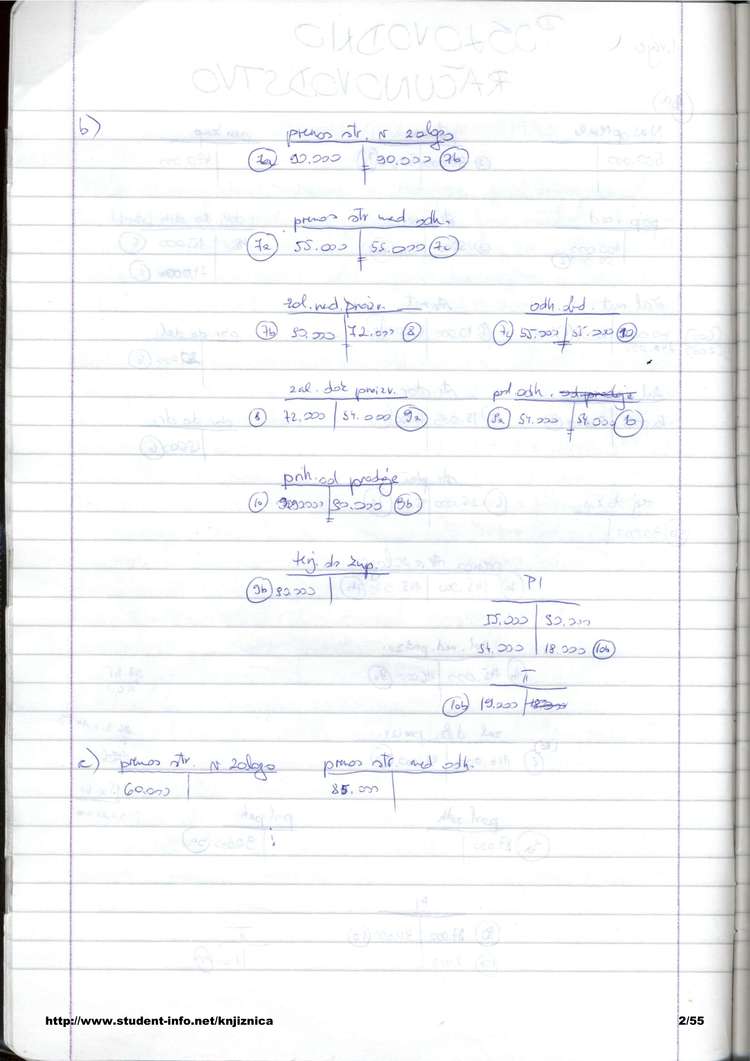 b)
prenos str. v zalogo
7a 90.000 90.000 7b
prenos str ned odh.
7a 55.000 55.000 7c
zal. ned. proizv. odh. ned
7b 90.000 72.000 8 7c 55.000 55.000 10
zal. dok proizv. prl odh.
8 72.000 54.000 9a 9a 54.000 54.000 10
prih. od prodaje
10 90.000 9b
terj. do kup.
9b 90.000
PI
55.000 90.000
54.000 18.000 10b
10b 19.000
c) prenos str. v zalogo prenos str. ned odh.
60.000 85.000
http://www.student-info.net/knjiznica 2/55